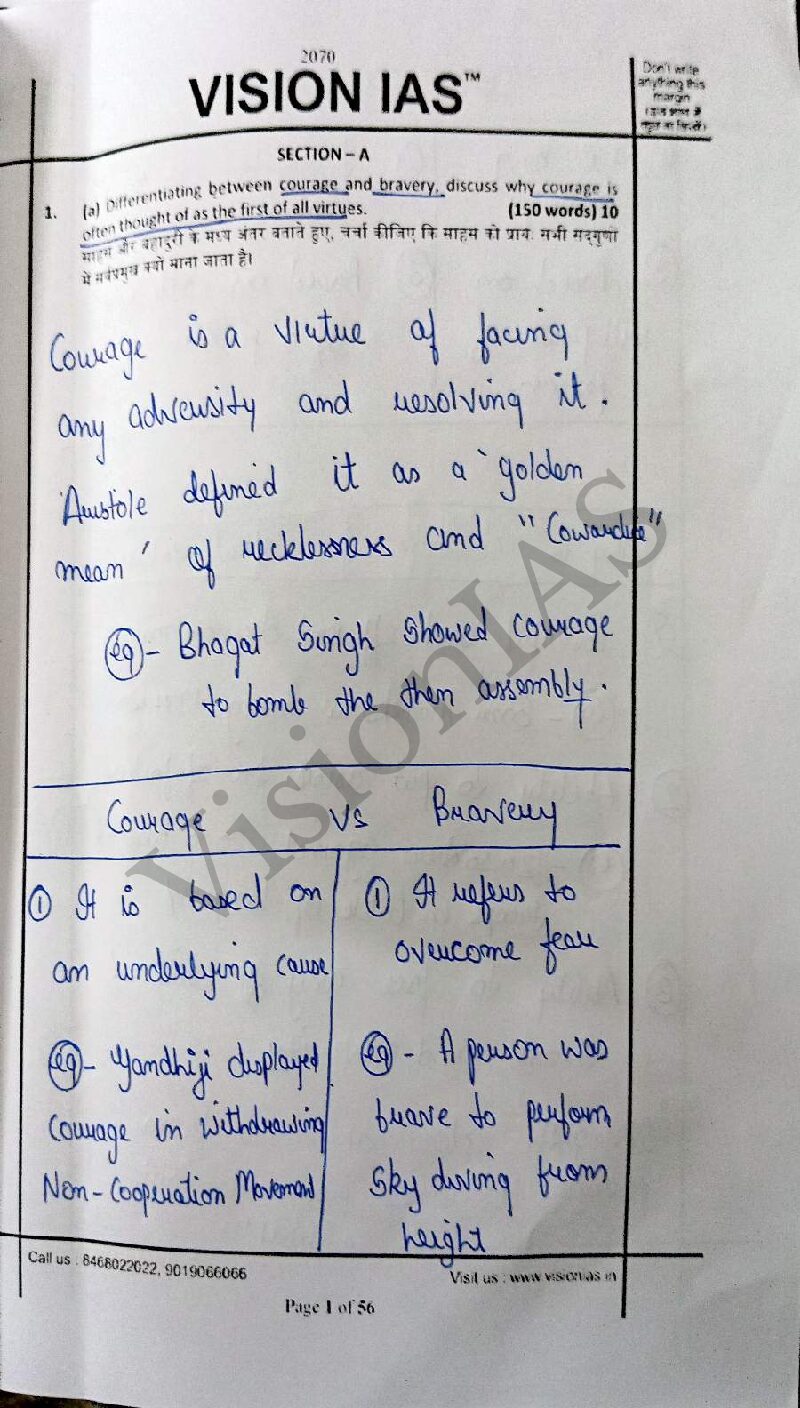 2070
VISION IAS™
Don't write
anything this
margin
SECTION – A
1. (a) Differentiating between courage and bravery, discuss why courage is
often thought of as the first of all virtues. (150 words) 10
साहस और बहादुरी के मध्य अंतर बताते हुए, चर्चा कीजिए कि साहस को प्रायः सभी सद्गुणों
में सर्वप्रमुख क्यों माना जाता है।
Courage is a virtue of facing
any adversity and resolving it.
Aristole defined it as a 'golden
mean' of recklessness and "Cowardice"
eg - Bhagat Singh showed courage
to bomb the then assembly.
Courage Vs Bravery
① It is based on
an underlying cause
eg - Gandhiji displayed
courage in withdrawing
Non-Cooperation Movement
① It refers to
overcome fear
eg - A person was
brave to perform
Sky diving from
height
VisionIAS
Call us : 8468022022, 9019066066
Visit us : www.visionias.in
Page 1 of 56